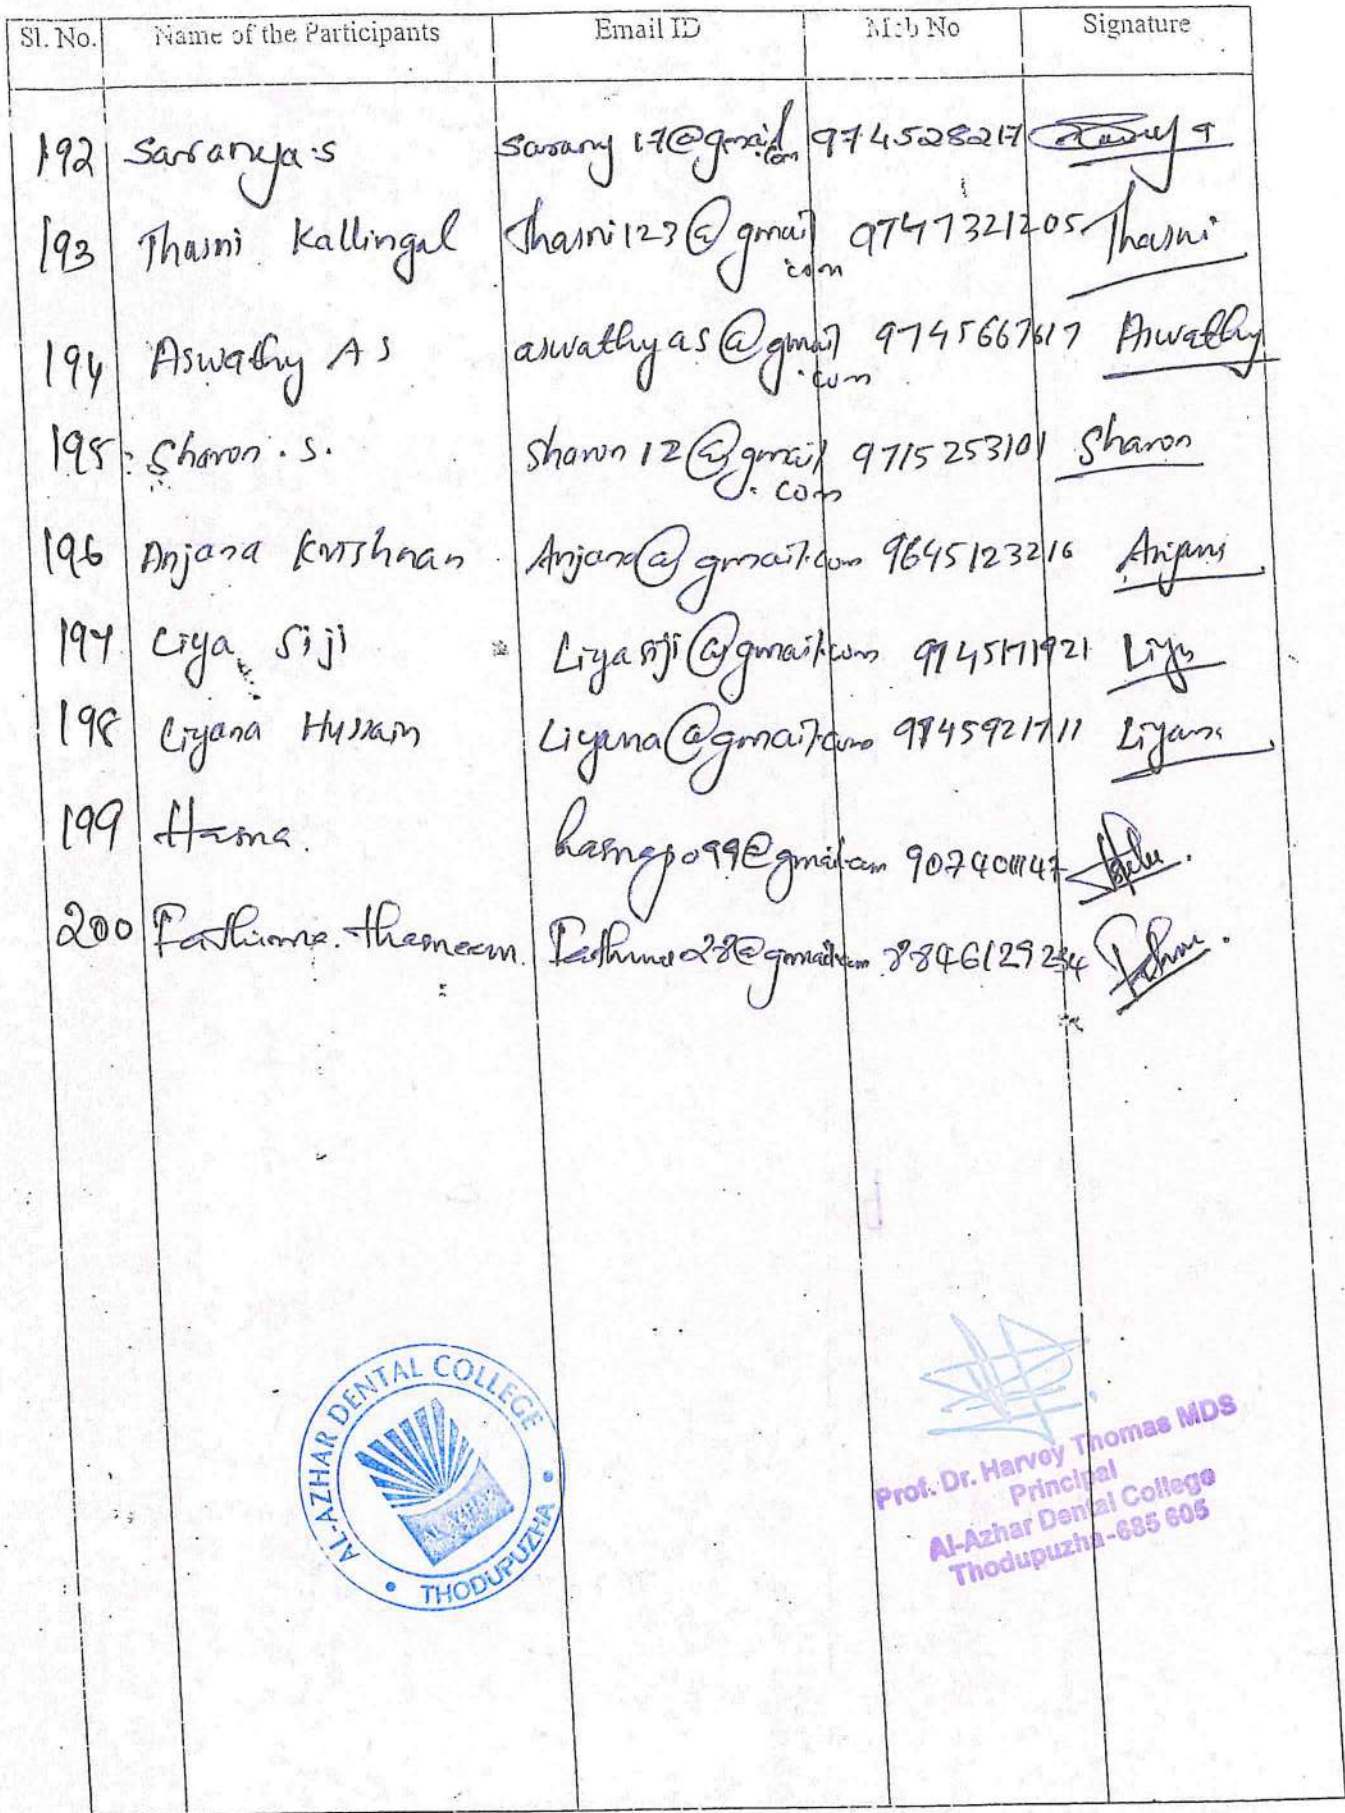 Sl. No. Name of the Participants Email ID Mob No Signature
192 Saranya.s sarany17@gmail.com 974528217
193 Thasni Kallingal Thasni123@gmail.com 9747321205 Thasni
194 Aswathy A S aswathyas@gmail.com 9745667617 Aswathy
195 Sharon.S. Sharon12@gmail.com 9715253101 Sharon
196 Anjana Krishnan Anjana@gmail.com 9645123216 Anjana
197 Liya Siji Liyasiji@gmail.com 9745171921 Liya
198 Liyana Hussain Liyana@gmail.com 9745921711 Liyana
199 Hasna.
200 Fathima. thasneem. 8846129234
AL-AZHAR DENTAL COLLEGE
• THODUPUZHA •
AL-AZHAR
Prof. Dr. Harvey Thomas MDS
Principal
Al-Azhar Dental College
Thodupuzha-685 605